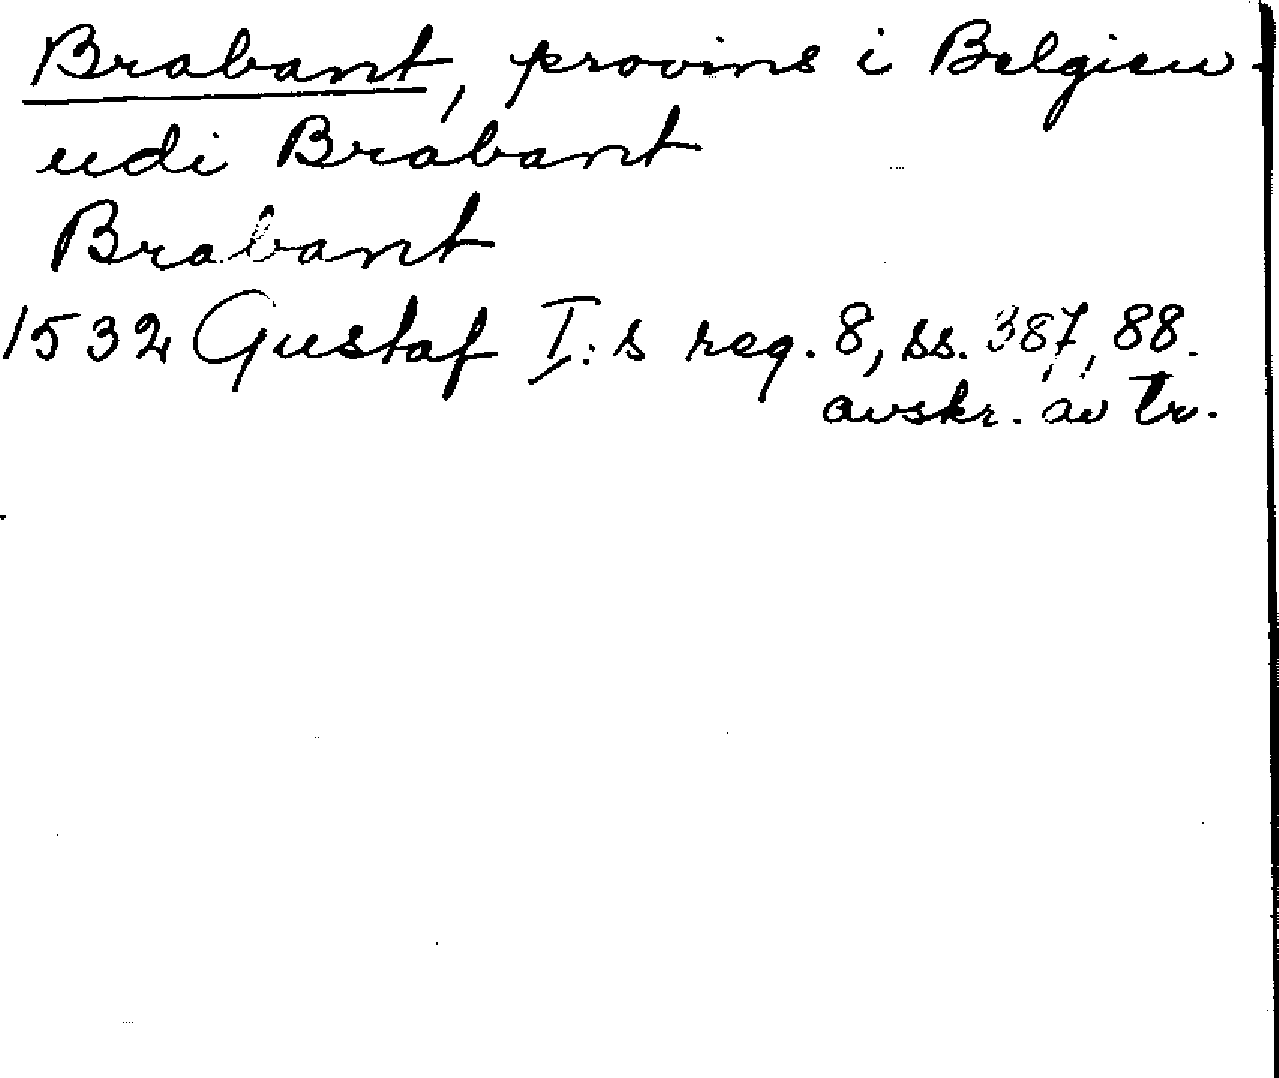 Brabant, provins i Belgien.
udi Brabant
Brabant
1532 Gustaf I:s reg. 8, ss. 387, 88.
avskr. av tr.